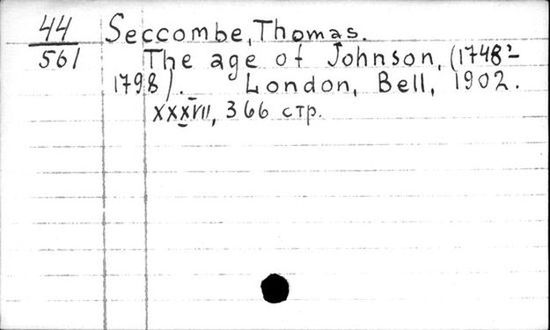 44 Seccombe, Thomas.
561 The age of Johnson, (1748-
1798). London, Bell, 1902.
XXXVII, 366 стр.